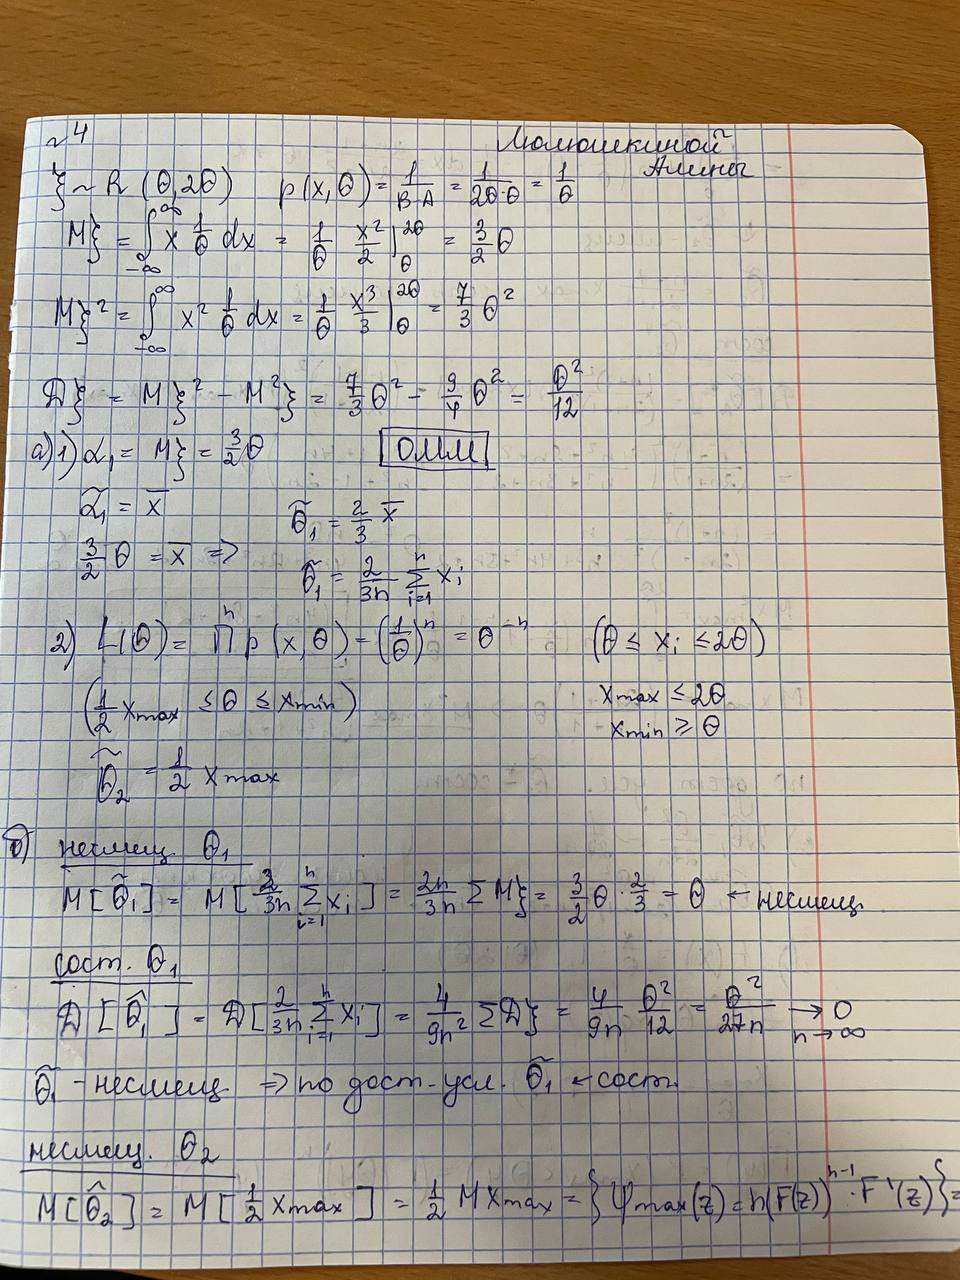 №4
Мотошкиной
Алины
ξ ~ R (θ, 2θ) p(x, θ) = 1/(B-A) = 1/(2θ-θ) = 1/θ
Mξ = ∫_{-∞}^{∞} x 1/θ dx = 1/θ x²/2 |_θ^{2θ} = 3/2 θ
Mξ² = ∫_{-∞}^{∞} x² 1/θ dx = 1/θ x³/3 |_θ^{2θ} = 7/3 θ²
Dξ = Mξ² - M²ξ = 7/3 θ² - 9/4 θ² = θ²/12
а) 1) α₁ = Mξ = 3/2 θ ОММ
α̃₁ = x̄
θ̃₁ = 2/3 x̄
3/2 θ = x̄ =>
θ̃₁ = 2/3n Σ_{i=1}^{n} xᵢ
2) L(θ) = П^n p(x, θ) = (1/θ)^n = θ^{-n} (θ ≤ xᵢ ≤ 2θ)
(1/2 xmax ≤ θ ≤ xmin) xmax ≤ 2θ
xmin ≥ θ
θ̃₂ = 1/2 xmax
б) несмещ. θ₁
M[θ̃₁] = M[2/3n Σ_{i=1}^{n} xᵢ] = 2n/3n Σ Mξ = 3/2 θ · 2/3 = θ ← несмещ.
сост. θ₁
D[θ̃₁] = D[2/3n Σ_{i=1}^{n} xᵢ] = 4/9n² Σ Dξ = 4/9n θ²/12 = θ²/27n → 0
n→∞
θ̃₁ - несмещ. => по дост. усл. θ̃₁ - сост.
несмещ. θ₂
M[θ̃₂] = M[1/2 xmax] = 1/2 M xmax = {φmax(z) = n(F(z))^{n-1} · F'(z)} =